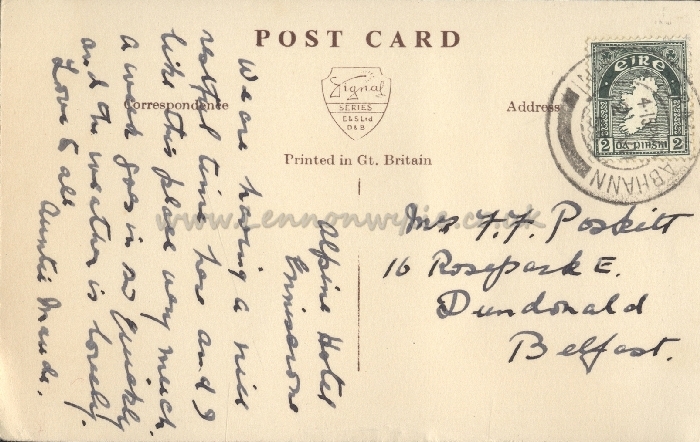 POST CARD
Correspondence
Address
Signal
SERIES
E&S Ltd
D&B
Printed in Gt. Britain
EIRE
2 DÁ PINSIN 2
ABHANN
www.Lennonwylie.co.uk
Alpine Hotel
Enniscrone
We are having a nice
restful time here and I
like this place very much
a week goes in so quickly
and the weather is lovely.
Love to all
Auntie Maude.
Mr F. F. Poskitt
16 Rosepark E.
Dundonald
Belfast.